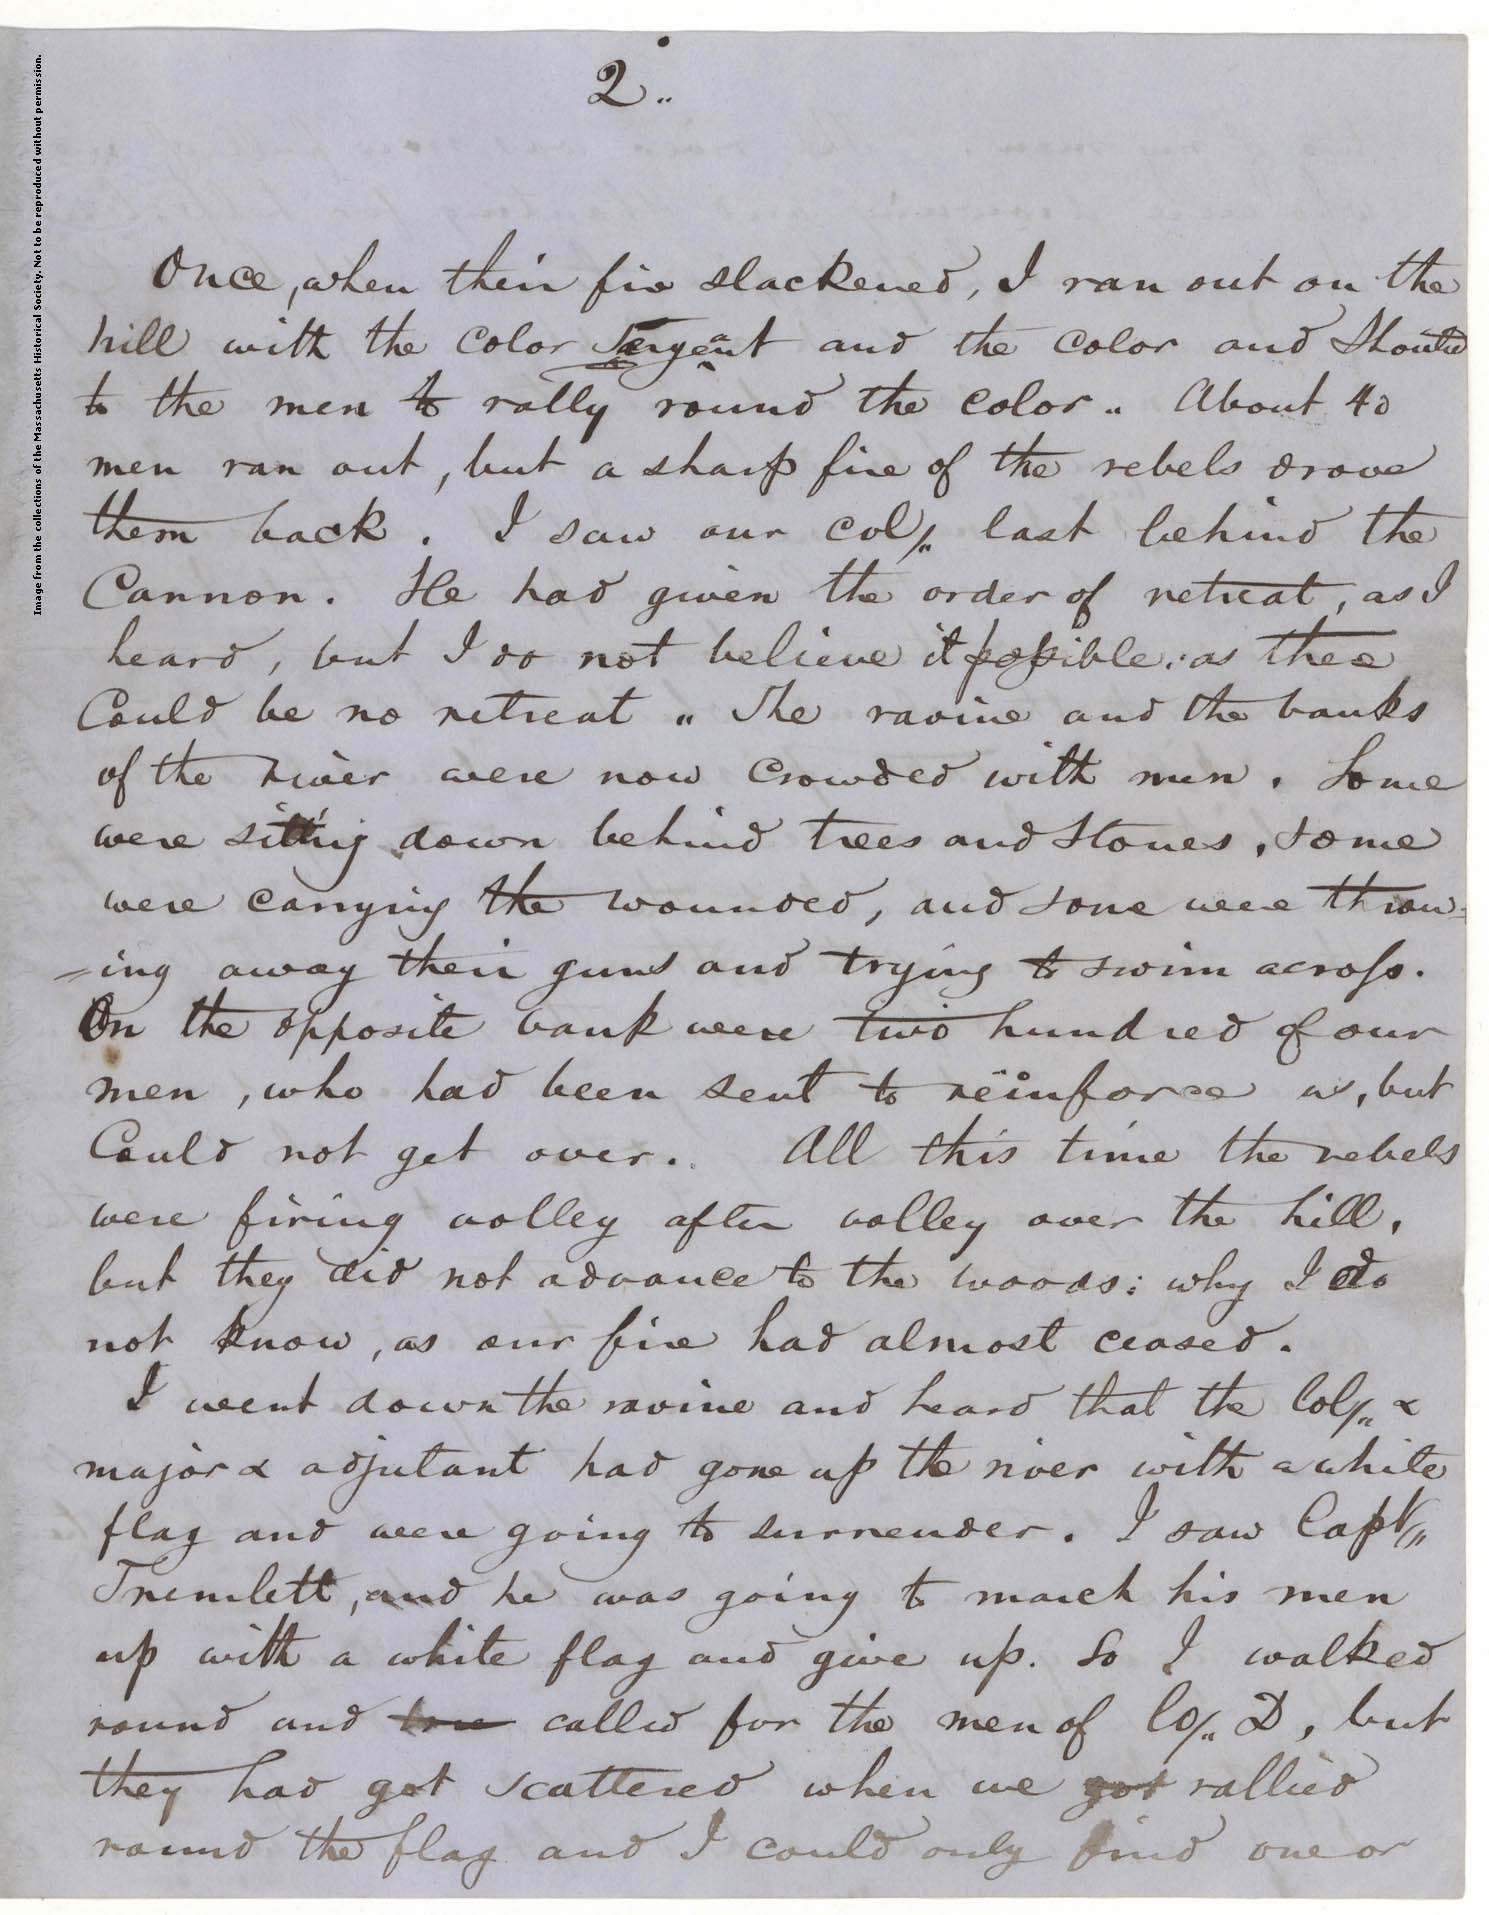 2..
Once, when their fire slackened, I ran out on the
hill with the color Sergeant and the color and Shouted
to the men to rally round the color.. About 40
men ran out, but a sharp fire of the rebels drove
them back. I saw our Col/.. last behind the
Cannon. He had given the order of retreat, as I
heard, but I do not believe it possible: as there
Could be no retreat .. The ravine and the banks
of the river were now Crowded with men. Some
were sitting down behind trees and stones, some
were carrying the wounded, and some were throw=
=ing away their guns and trying to swim across.
On the opposite bank were two hundred of our
men, who had been sent to reïnforce us, but
Could not get over. All this time the rebels
were firing volley after volley over the hill,
but they did not advance to the woods: why I do
not know, as our fire had almost ceased.
I went down the ravine and heard that the Col/.. &
major & adjutant had gone up the river with a white
flag and were going to surrender. I saw Capt/..
Tremlett, and he was going to march his men
up with a white flag and give up. So I walked
round and called for the men of Co/.. D, but
they had got scattered when we got rallied
round the flag and I could only find one or
Image from the collections of the Massachusetts Historical Society. Not to be reproduced without permission.